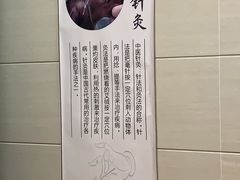 针灸
中医针灸，针法和灸法的合称，针
法是把毫针按一定穴位刺入动物体
内，用捻、提等手法来治疗疾病，
灸法是把燃烧着的艾绒按一定穴位
熏灼皮肤，利用热的刺激来治疗疾
病，针灸是中国古代常用的治疗各
种疾病的手法之一。